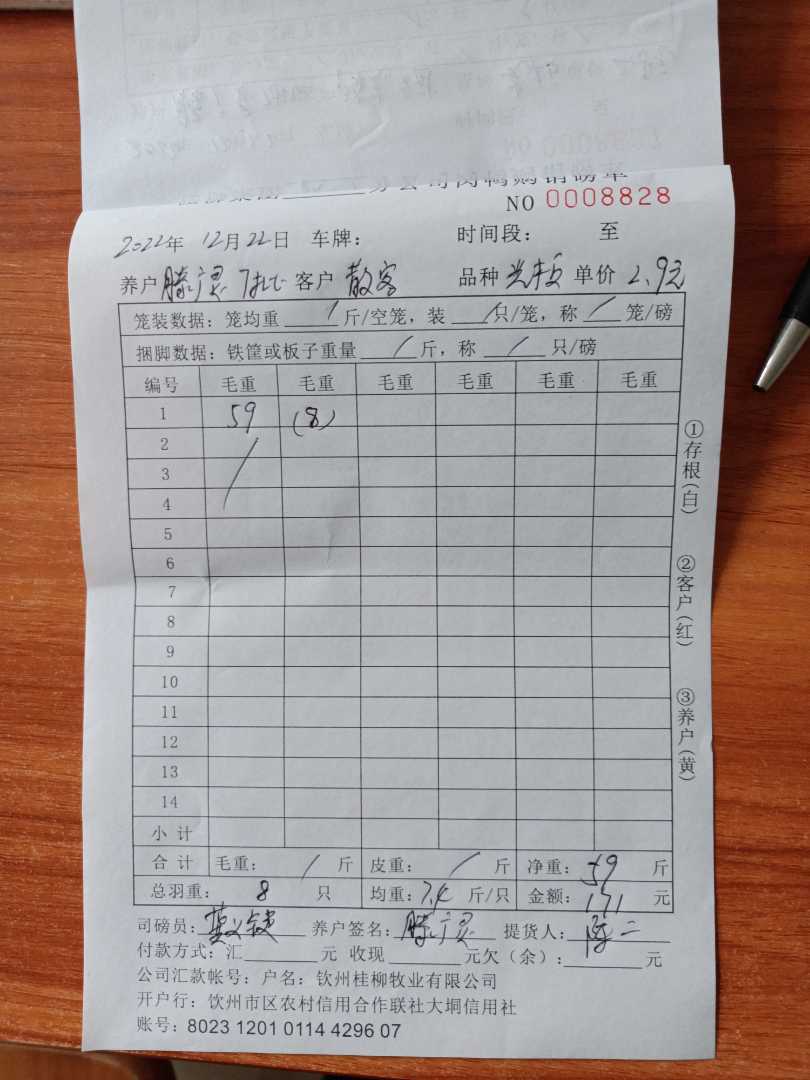 分公司肉鸭购销磅单
NO 0008828
2022年 12月22日 车牌： 时间段： 至
养户 滕广灵 客户 散客 品种 单价 2.9元
笼装数据：笼均重 / 斤/空笼，装 / 只/笼，称 / 笼/磅
捆脚数据：铁筐或板子重量 / 斤，称 / 只/磅
编号 毛重 毛重 毛重 毛重 毛重 毛重
1 59 (8)
2 /
3
4
5
6
7
8
9
10
11
12
13
14
小计
合计 毛重： / 斤 皮重： / 斤 净重：59 斤
总羽重： 8 只 均重：7.4 斤/只 金额：171 元
司磅员： 养户签名：滕广灵 提货人：
付款方式：汇 元 收现 元欠（余）： 元
公司汇款帐号：户名：钦州桂柳牧业有限公司
开户行：饮州市区农村信用合作联社大垌信用社
账号：8023 1201 0114 4296 07
①存根(白)
②客户(红)
③养户(黄)